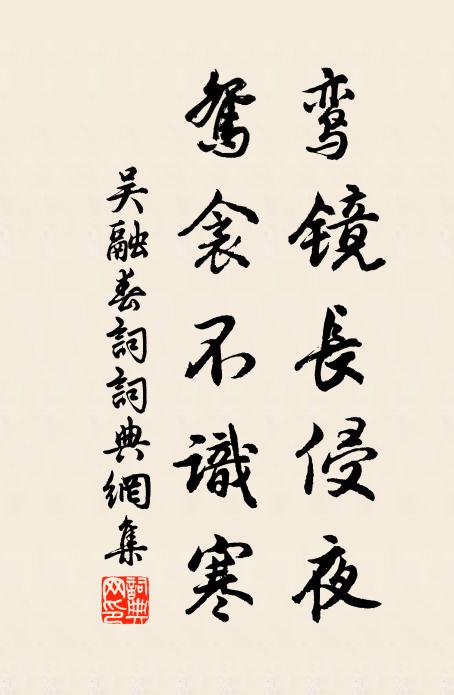 鸾镜長侵夜
鴛衾不識寒
吴融春詞詞典網集
詞典网印